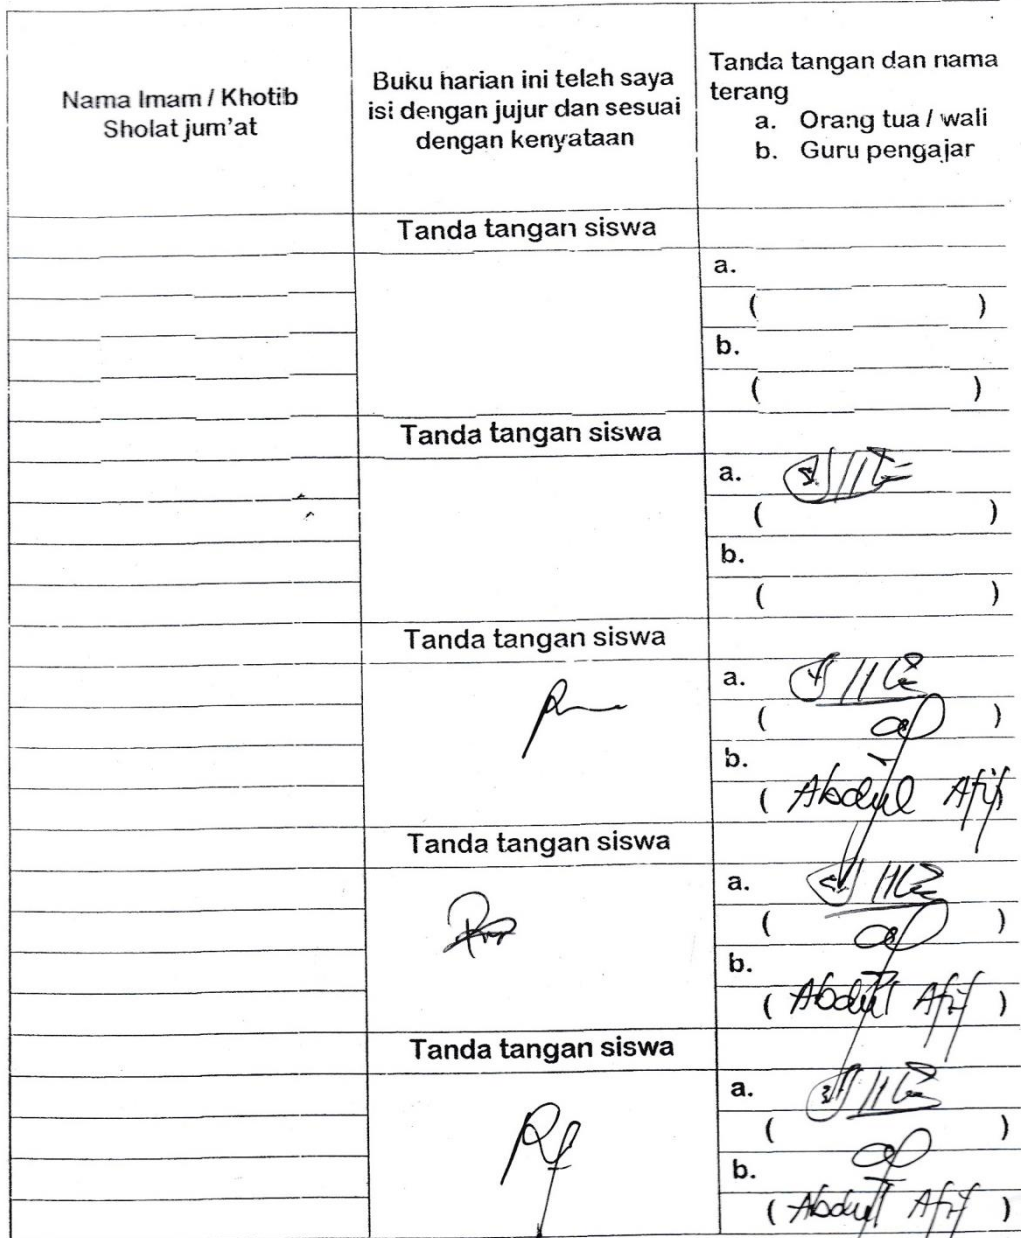 Nama Imam / Khotib
Sholat jum'at
Buku harian ini telah saya
isi dengan jujur dan sesuai
dengan kenyataan
Tanda tangan dan nama
terang
a. Orang tua / wali
b. Guru pengajar
Tanda tangan siswa
a.
( )
b.
( )
Tanda tangan siswa
a.
( )
b.
( )
Tanda tangan siswa
a.
( )
b.
( Abdul Afif
Tanda tangan siswa
a.
( )
b.
( Abdul Afif )
Tanda tangan siswa
a.
( )
b.
( Abdul Afif )